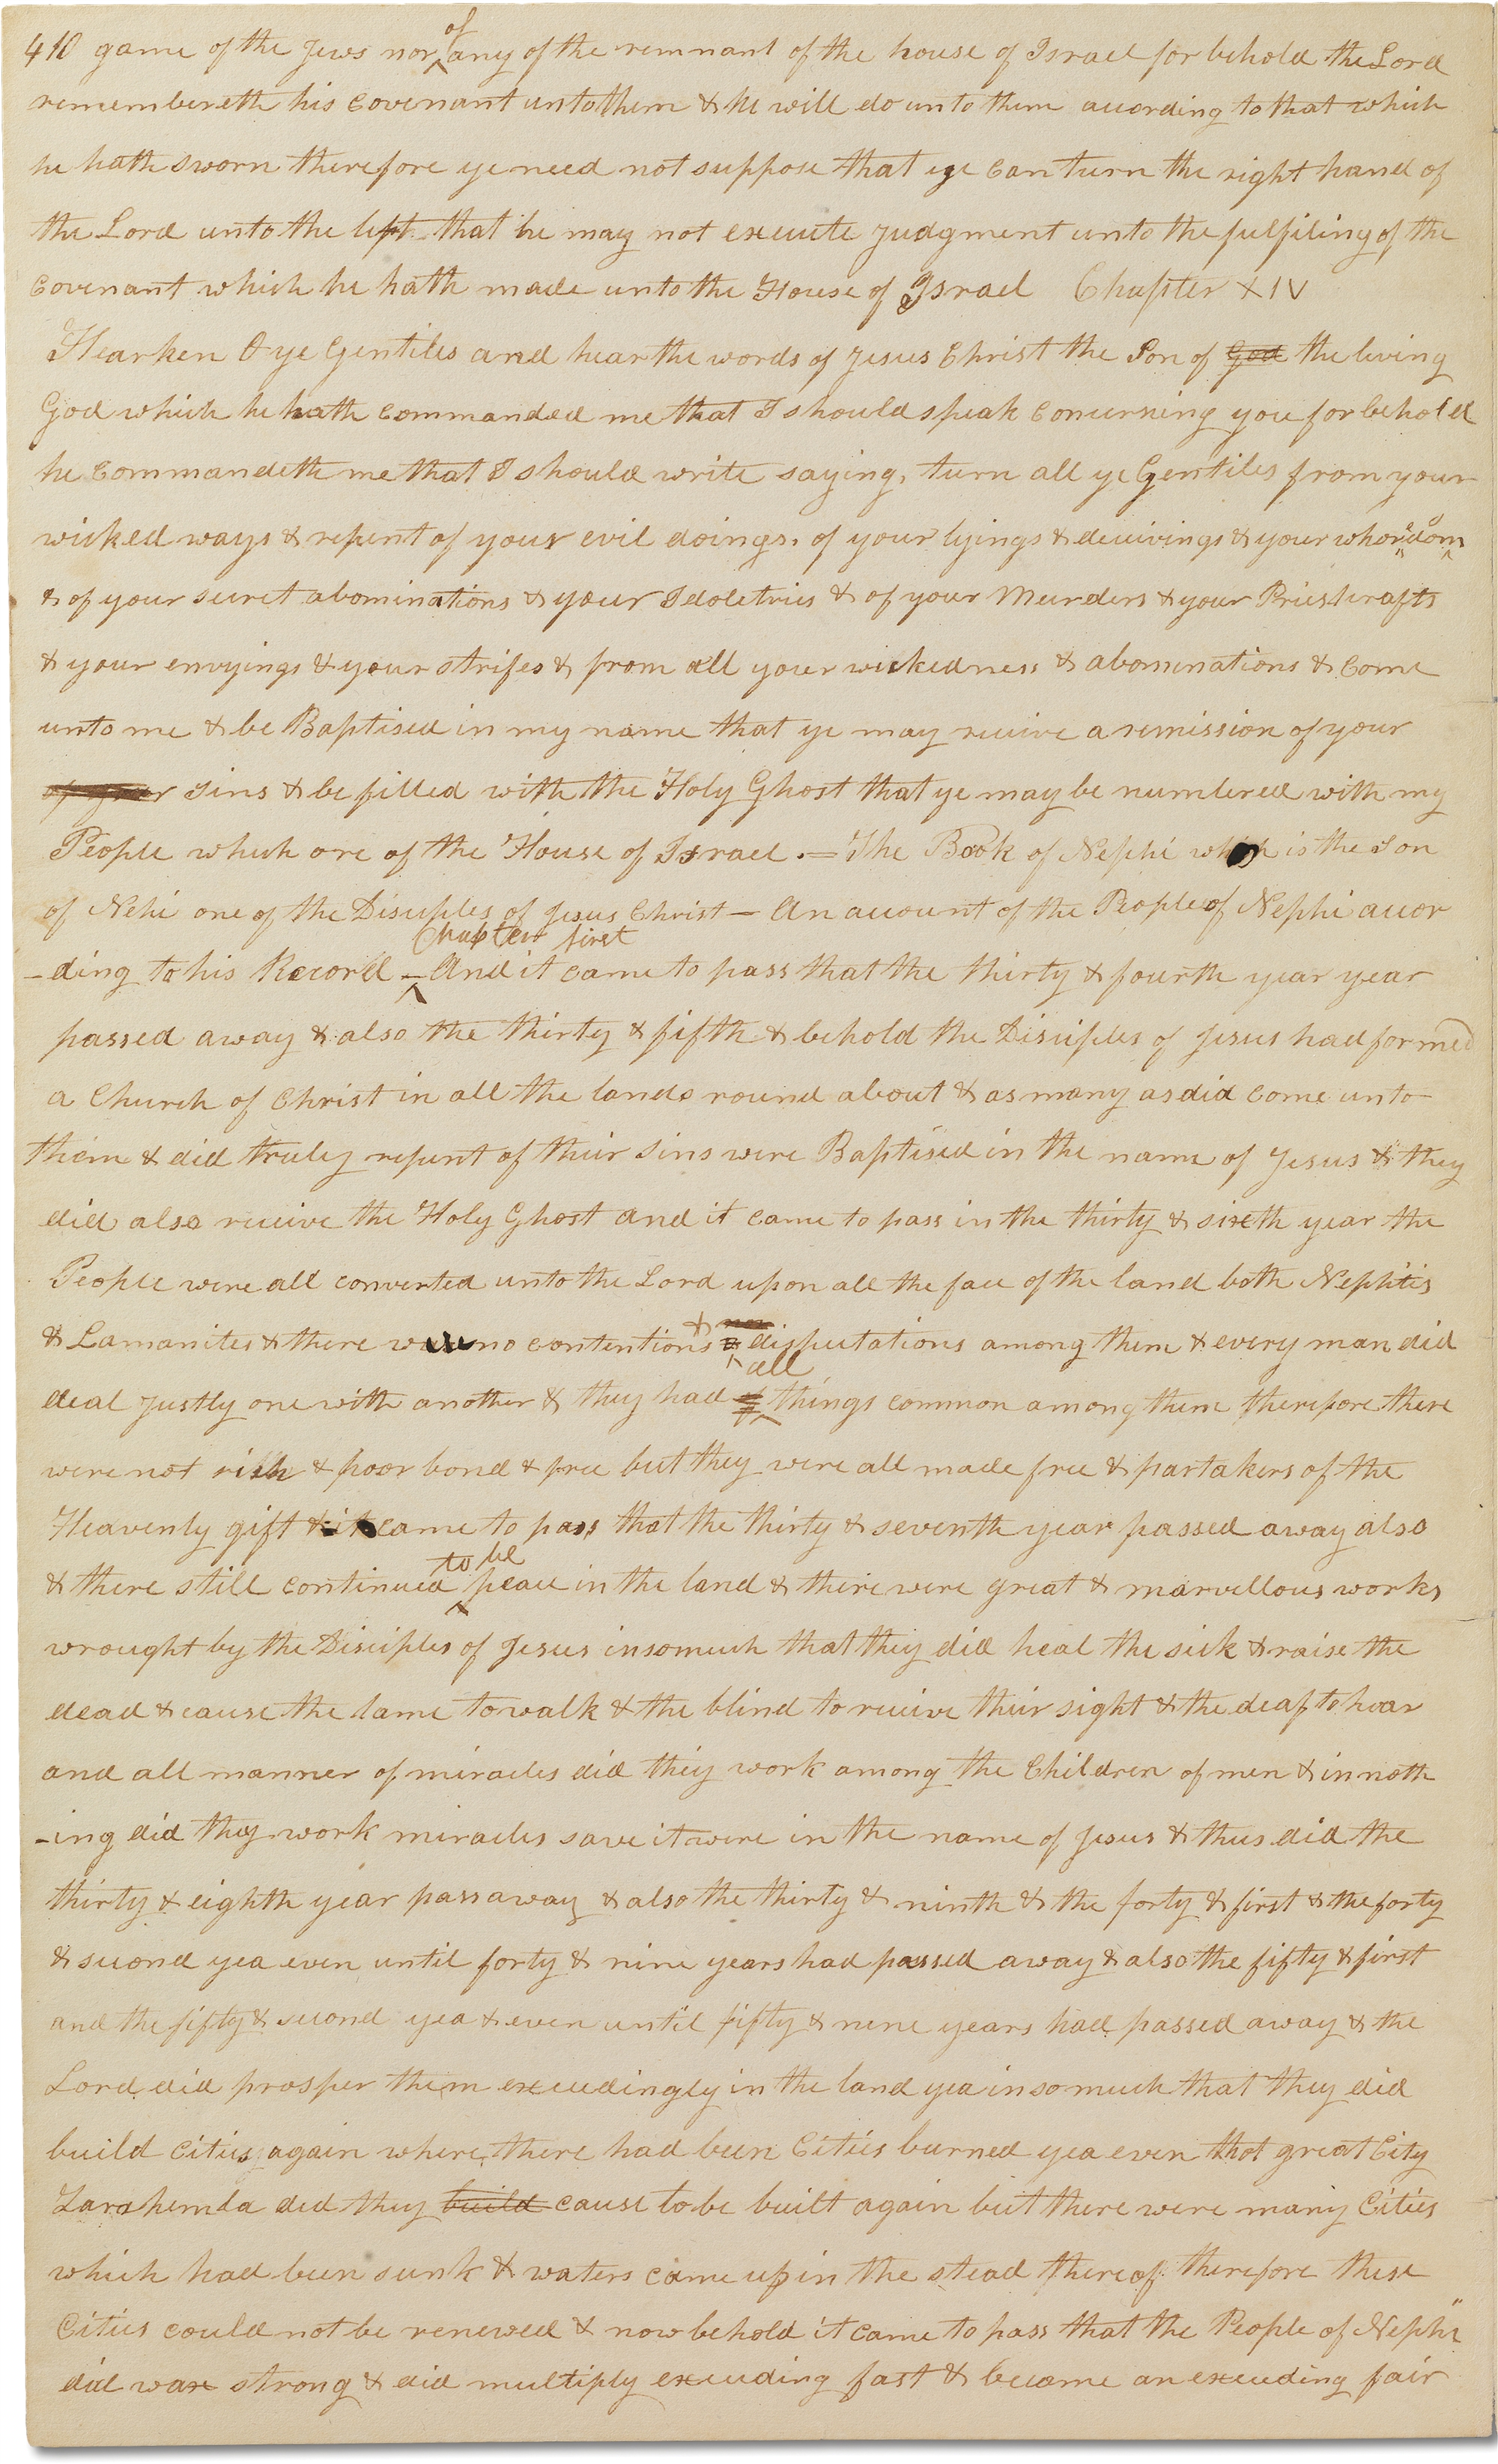 410 game of the Jews nor of any of the remnant of the house of Israel for behold the Lord
remembereth his covenant unto them & he will do unto them according to that which
he hath sworn therefore ye need not suppose that ye can turn the right hand of
the Lord unto the left that he may not execute Judgment unto the fulfiling of the
covenant which he hath made unto the House of Israel Chapter XIV
Hearken O ye Gentiles and hear the words of Jesus Christ the Son of God the living
God which he hath commanded me that I should speak concerning you for behold
he commandeth me that I should write saying, turn all ye Gentiles from your
wicked ways & repent of your evil doings, of your lyings & deceivings & your whoredoms
& of your secret abominations & your Idoletries & of your Murders & your Priestcrafts
& your envyings & your strifes & from all your wickedness & abominations & come
unto me & be Baptised in my name that ye may receive a remission of your
of your sins & be filled with the Holy Ghost that ye may be numbered with my
People which are of the House of Israel .= The Book of Nephi which is the Son
of Nehi one of the Disciples of Jesus Christ — An account of the People of Nephi accor
Chapter first
-ding to his Record — And it came to pass that the thirty & fourth year year
passed away & also the thirty & fifth & behold the Disciples of Jesus had formed
a Church of Christ in all the lands round about & as many as did come unto
them & did truly repent of their sins were Baptised in the name of Jesus & they
did also receive the Holy Ghost and it came to pass in the thirty & sixth year the
People were all converted unto the Lord upon all the face of the land both Nephites
& Lamanites & there were no contentions & disputations among them & every man did
deal Justly one with another & they had all things common among them therefore there
were not rich & poor bond & free but they were all made free & partakers of the
Heavenly gift & it came to pass that the thirty & seventh year passed away also
& there still continued to be peace in the land & there were great & marvellous works
wrought by the Disciples of Jesus insomuch that they did heal the sick & raise the
dead & cause the lame to walk & the blind to receive their sight & the deaf to hear
and all manner of miracles did they work among the Children of men & in noth
-ing did they work miracles save it were in the name of Jesus & thus did the
thirty & eighth year pass away & also the thirty & ninth & the forty & first & the forty
& second yea even until forty & nine years had passed away & also the fifty & first
and the fifty & second yea & even until fifty & nine years had passed away & the
Lord did prosper them exceedingly in the land yea insomuch that they did
build Cities again where there had been Cities burned yea even that great City
Zarahemla did they build cause to be built again but there were many Cities
which had been sunk & waters came up in the stead thereof therefore these
Cities could not be renewed & now behold it came to pass that the People of Nephi
did wax strong & did multiply exceeding fast & became an exceeding fair